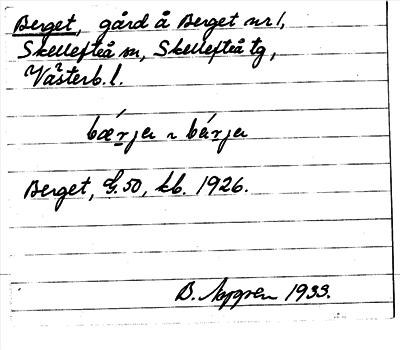 Berget, gård å Berget nr 1,
Skellefteå sn, Skellefteå tg,
Västerb. l.
bǽrja ~ bárja
Berget, G.50, kb. 1926.
B. 1933.